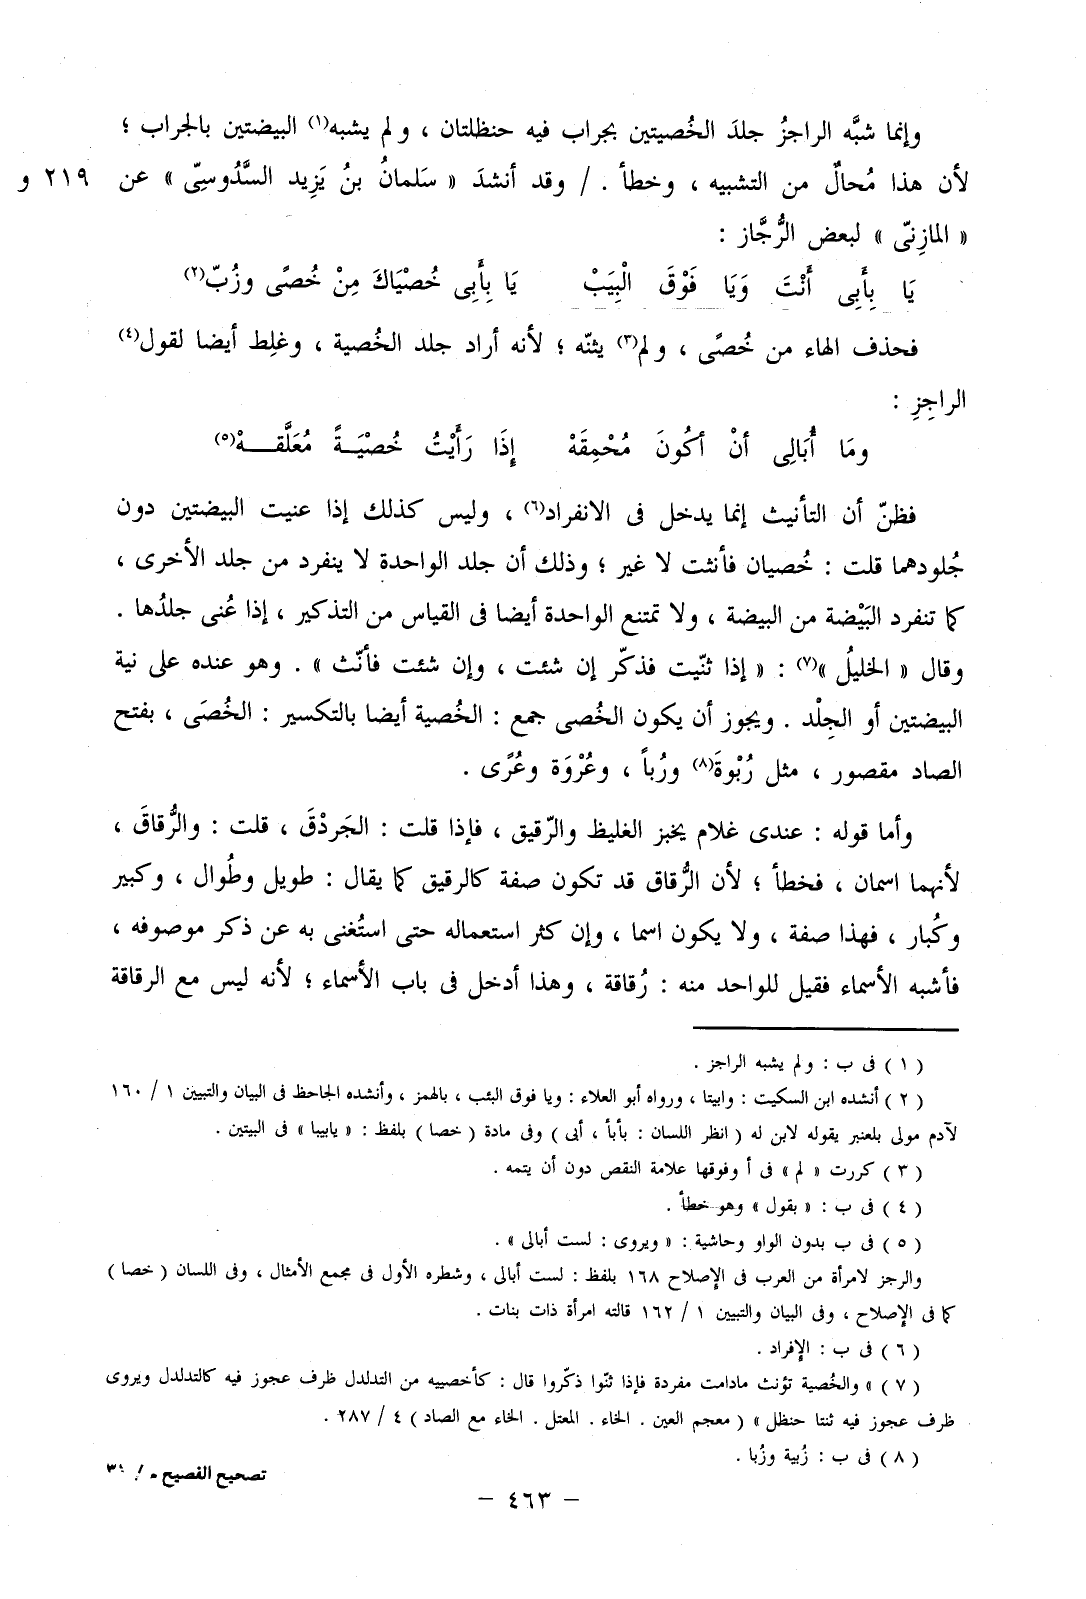 وإنما شبَّه الراجزُ جلدَ الخُصيتين بجراب فيه حنظلتان ، ولم يشبه(١) البيضتين بالجراب ؛
لأن هذا مُحالٌ من التشبيه ، وخطأ . / وقد أنشدَ « سَلمانُ بنُ يَزِيد السَّدُوسِىّ » عن ٢١٩ و
« المازِنىّ » لبعض الرُّجَّاز :
يَا بِأَبِى أَنْتَ وَيَا فَوْقَ الْبِيَبْ يَا بِأَبِى خُصْيَاكَ مِنْ خُصًى وزُبّ(٢)
فحذف الهاء من خُصًى ، ولم(٣) يثنّه ؛ لأنه أراد جلد الخُصية ، وغلِط أيضا لقول(٤)
الراجِزِ :
ومَا أُبَالِى أنْ أكُونَ مُحْمِقَهْ إِذَا رَأَيْتُ خُصْيَــةً مُعَلَّقــــهْ(٥)
فظنّ أن التأنيث إنما يدخل فى الانفراد(٦) ، وليس كذلك إذا عنيت البيضتين دون
جُلودهما قلت : خُصيان فأنثت لا غير ؛ وذلك أن جلد الواحدة لا ينفرد من جلد الأخرى ،
كما تنفرد البَيْضة من البيضة ، ولا تمتنع الواحدة أيضا فى القياس من التذكير ، إذا عُنى جلدُها .
وقال « الخليلُ »(٧) : « إذا ثنّيت فذكّر إن شئت ، وإن شئت فأنّث » . وهو عنده على نية
البيضتين أو الجِلْد . ويجوز أن يكون الخُصى جمع : الخُصية أيضا بالتكسير : الخُصَى ، بفتح
الصاد مقصور ، مثل رُبْوةَ(٨) ورُباً ، وعُرْوَة وعُرًى .
وأما قوله : عندى غلام يخبز الغليظ والرّقيق ، فإذا قلت : الجَردْقَ ، قلت : والرُّقاقَ ،
لأنهما اسمان ، فخطأ ؛ لأن الرُّقاق قد تكون صفة كالرقيق كما يقال : طويل وطُوال ، وكبير
وكُبار ، فهذا صفة ، ولا يكون اسما ، وإن كثر استعماله حتى استُغنى به عن ذكر موصوفه ،
فأشبه الأسماء فقيل للواحد منه : رُقاقة ، وهذا أدخل فى باب الأسماء ؛ لأنه ليس مع الرقاقة
( ١ ) فى ب : ولم يشبه الراجز .
( ٢ ) أنشده ابن السكيت : وابيتا ، ورواه أبو العلاء : ويا فوق البئب ، بالهمز ، وأنشده الجاحظ فى البيان والتبيين ١ / ١٦٠
لآدم مولى بلعنبر يقوله لابن له ( انظر اللسان : بأبأ ، أبى ) وفى مادة ( خصا ) بلفظ : « يابيبا » فى البيتين .
( ٣ ) كررت « لم » فى أ وفوقها علامة النقص دون أن يتمه .
( ٤ ) فى ب : « بقول » وهو خطأ .
( ٥ ) فى ب بدون الواو وحاشية : « ويروى : لست أبالى » .
والرجز لامرأة من العرب فى الإصلاح ١٦٨ بلفظ : لست أبالى ، وشطره الأول فى مجمع الأمثال ، وفى اللسان ( خصا )
كما فى الإصلاح ، وفى البيان والتبيين ١ / ١٦٢ قالته امرأة ذات بنات .
( ٦ ) فى ب : الإفراد .
( ٧ ) « والخُصية تؤنث مادامت مفردة فإذا ثنّوا ذكّروا قال : كأخصييه من التدلدل ظرف عجوز فيه كالتدلدل ويروى
ظرف عجوز فيه ثنتا حنظل » ( معجم العين . الخاء . المعتل . الخاء مع الصاد ) ٤ / ٢٨٧ .
( ٨ ) فى ب : زُبية وزُبا .
تصحيح الفصيح -
– ٤٦٣ –